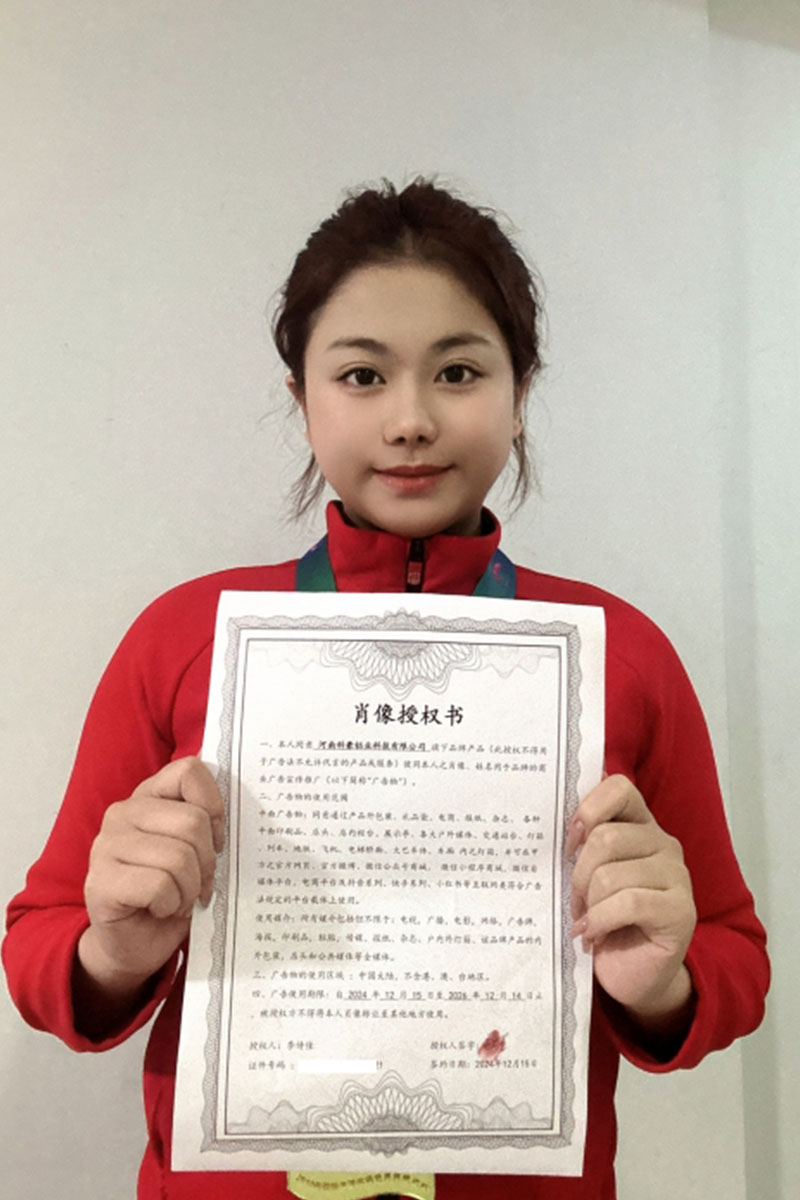 肖像授权书
一、本人同意 河南科豪铝业科技有限公司 旗下品牌产品（此授权不得用
于广告法不允许代言的产品或服务）使用本人之肖像、姓名用于品牌的商
业广告宣传推广（以下简称“广告物”）。
二、广告物的使用范围
平面广告物：同意通过产品外包装、礼品袋、电商、报纸、杂志、各种
平面印刷品、店头、店内柜台、展示牌、各大户外媒体、交通站台、灯箱
、列车、地铁、飞机、电梯轿厢、大巴车体、车厢内之灯箱，并可在甲
方之官方网页、官方微博、微信公众号商城、微信小程序商城，微信自
媒体平台、电商平台及抖音系列、快手系列、小红书等互联网类符合广告
法规定的平台载体上使用。
使用媒介：所有媒介包括但不限于：电视、广播、电影、网络、广告牌、
海报、印刷品、粘贴、传媒、报纸、杂志、户内外灯箱、该品牌产品的内
外包装，店头和公共媒体等全媒体。
三、广告物的使用区域：中国大陆，不含港、澳、台地区。
四、广告使用期限：自 2024 年 12 月 15 日至 2026 年 12 月 14 日止
，被授权方不得将本人肖像转让至其他地方使用。
授权人：李诗佳 授权人签字：
证件号码： 签约日期：2024年12月15日